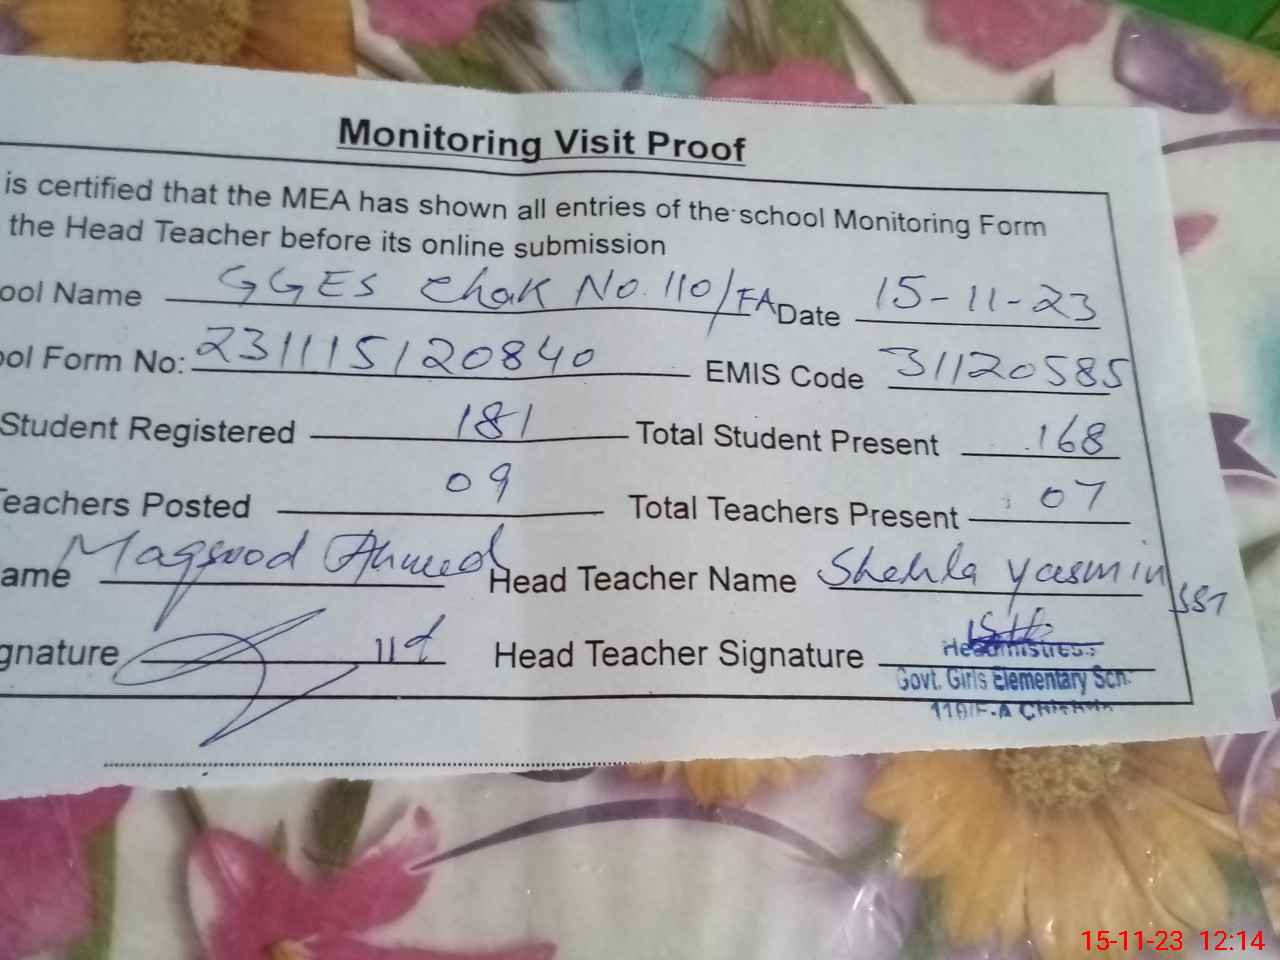 Monitoring Visit Proof
is certified that the MEA has shown all entries of the school Monitoring Form
the Head Teacher before its online submission
ool Name GGES Chak No. 110/FA Date 15-11-23
ool Form No: 231115120840 EMIS Code 31120585
Student Registered 181 Total Student Present 168
Teachers Posted 09 Total Teachers Present 07
ame Maqsood Ahmed Head Teacher Name Shehla Yasmin SST
gnature Head Teacher Signature
Headmistress
Govt. Girls Elementary Sch:
110/F.A
15-11-23 12:14